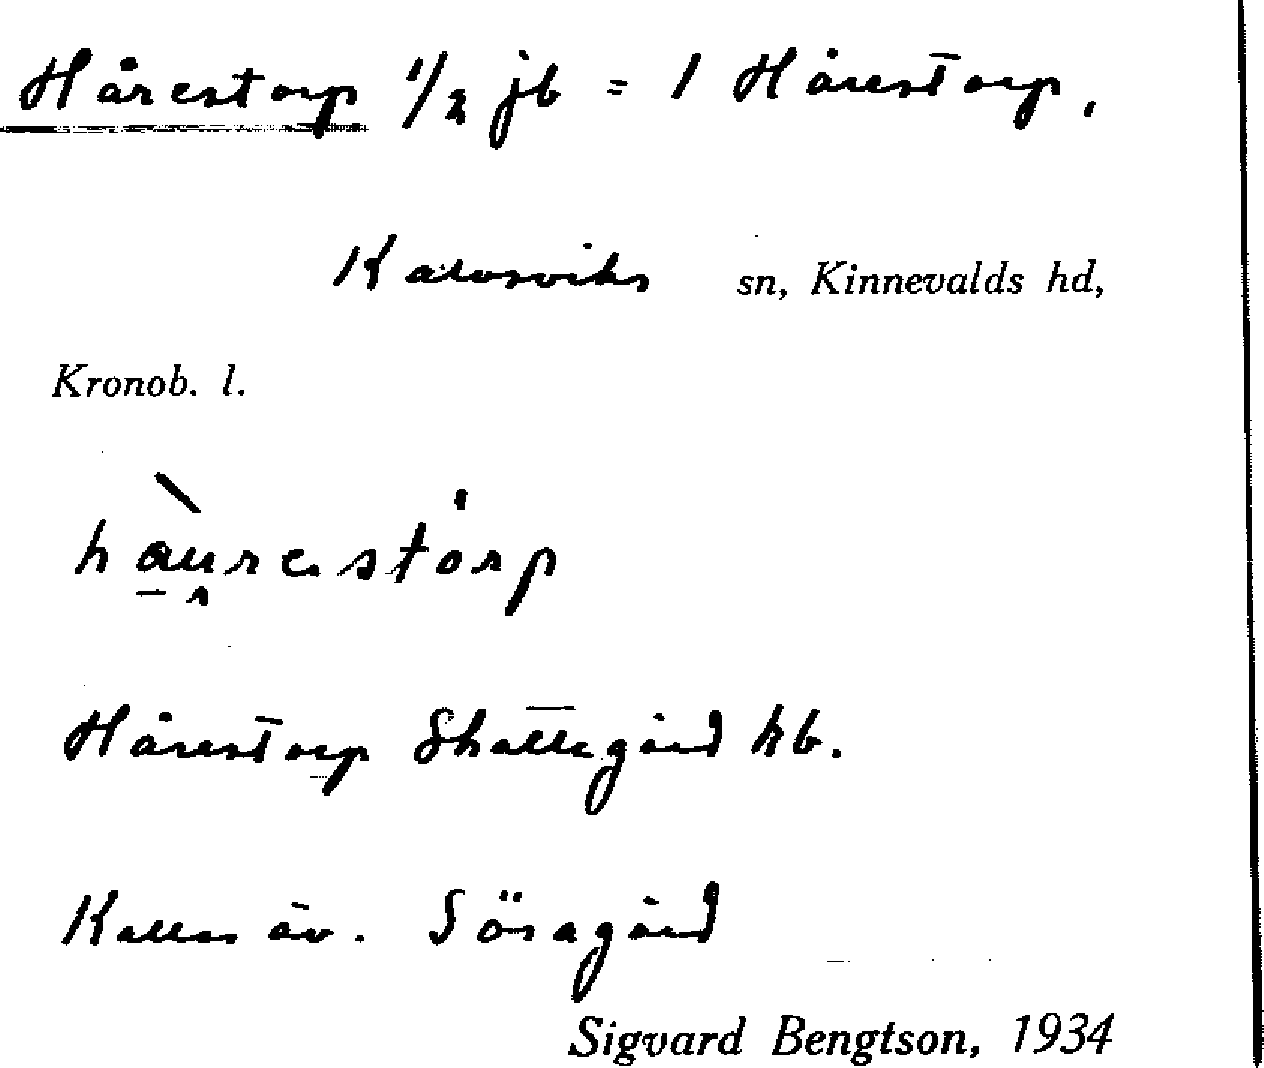 Hårestorp 1/2 jb = 1 Hårestorp,
Kalvsviks sn, Kinnevalds hd,
Kronob. l.
hàurestórp
Hårestorp Skattegård kb.
Kallas äv. Söragård
Sigvard Bengtson, 1934